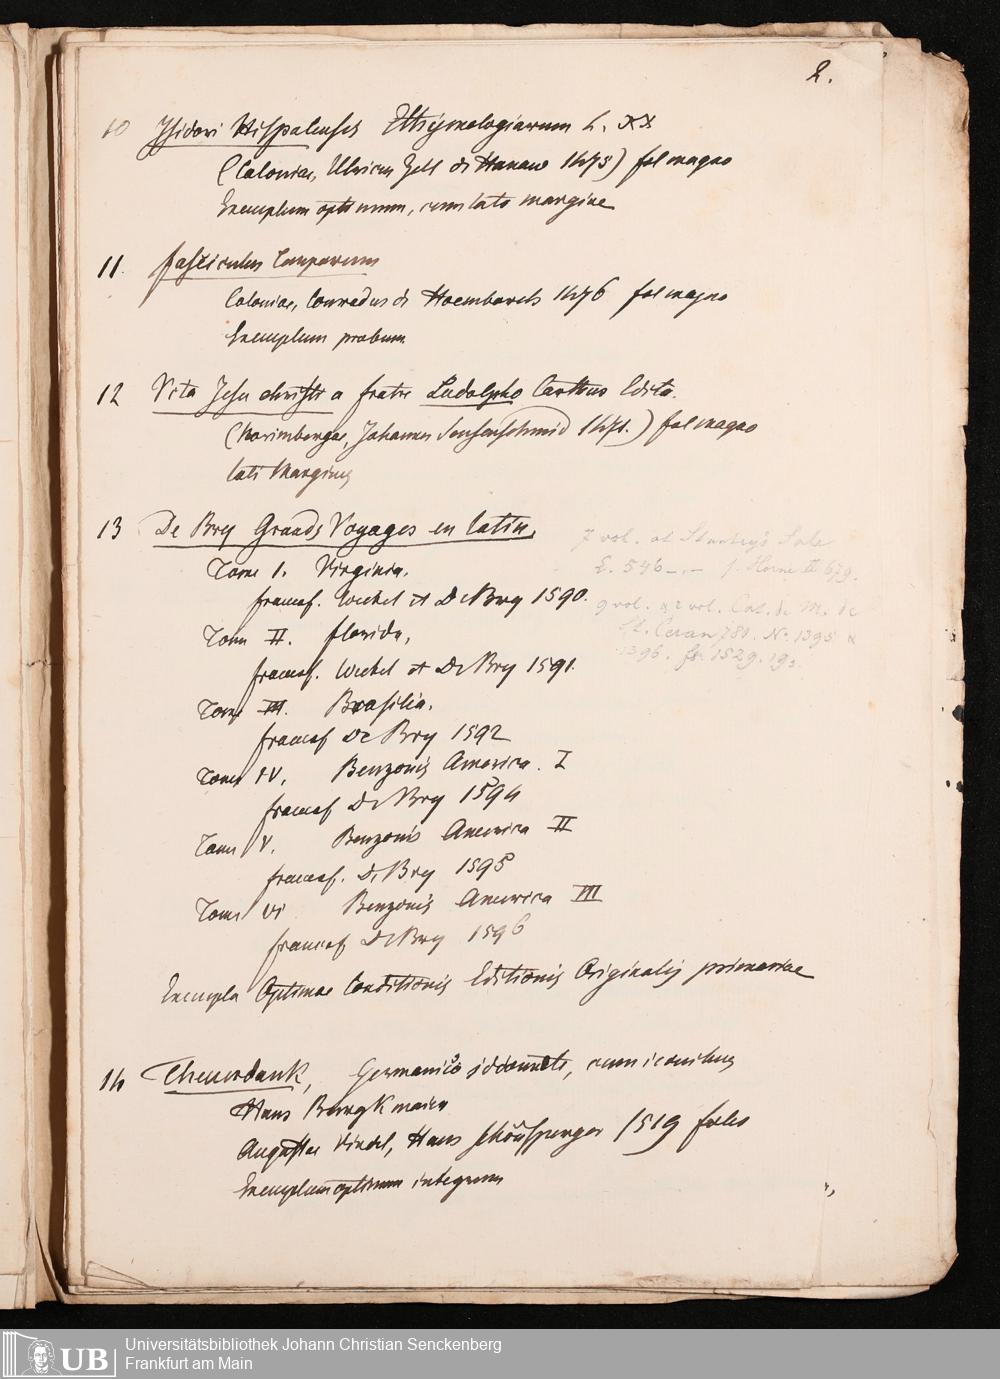 2.
10 Isidori Hispalensis Ethymologiarum L. XX
(Coloniae, Ulricus Zell de Hanau 1473) fol magno
Exemplum optimum, cum lato margine
11. fasciculus Temporum
Coloniae, Conradus de Hoemborch 1476 fol magno
Exemplum probum
12 Vita Jesu christi a fratre Ludolpho Carthus Edita.
(Norimbergae, Johannes Sensenschmid 1471.) fol magno
lati Marginis
13 De Bry Grands Voyages en latin,
7 vol. at Stanley's Sale
Tome I. Virginia.
£. 546 _._ Horne II 679.
francof. Wechel et De Bry 1590.
9 vol. Cat. de M. de
Tome II. florida,
St. Ceran 1780. No. 1395 &
francof. Wechel et De Bry 1591.
1396. fr. 1529. 19 s.
Tome III. Brasilia.
francof De Bry 1592
Tome IV. Benzonis America. I
francof De Bry 1594
Tome V. Benzonis America II
francof. De Bry 1595
Tome VI Benzonis America III
francof De Bry 1596
Exempla Optimae Conditionis Editionis Originalis primariae
14 Theuerdank, Germanico idiomate, cum iconibus
Hans Burgkmaier
Augustae Vindel, Hans Schönsperger 1519 folio
Exemplum optimum integrum
UB
Universitätsbibliothek Johann Christian Senckenberg
Frankfurt am Main